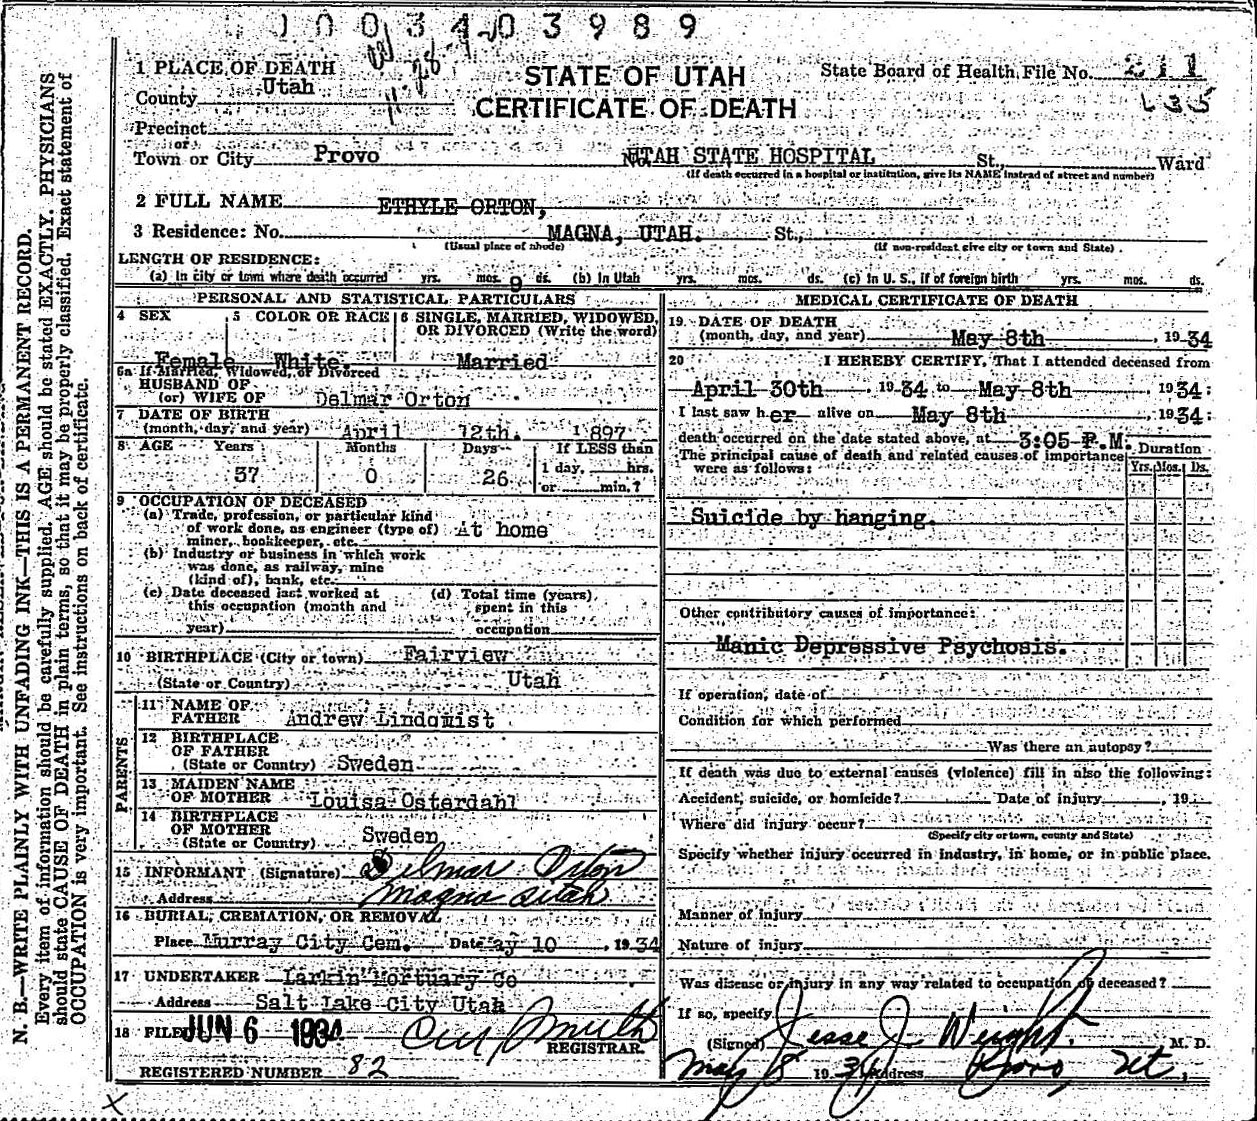 1003403989
1 PLACE OF DEATH
County Utah
11-28
STATE OF UTAH
CERTIFICATE OF DEATH
State Board of Health File No. 211
135
Precinct
or
Town or City Provo UTAH STATE HOSPITAL St., Ward
(If death occurred in a hospital or institution, give its NAME instead of street and number)
2 FULL NAME ETHYLE ORTON,
3 Residence: No. MAGNA, UTAH. St.,
(Usual place of abode) (If non-resident give city or town and State)
LENGTH OF RESIDENCE:
(a) In city or town where death occurred yrs. mos. 9 ds. (b) In Utah yrs. mos. ds. (c) In U. S., if of foreign birth yrs. mos. ds.
PERSONAL AND STATISTICAL PARTICULARS
4 SEX 5 COLOR OR RACE 6 SINGLE, MARRIED, WIDOWED, OR DIVORCED (Write the word)
Female White Married
6a If Married, Widowed, or Divorced
HUSBAND OF
(or) WIFE OF Delmar Orton
7 DATE OF BIRTH
(month, day, and year) April 12th. 1897
8 AGE Years Months Days If LESS than
37 0 26 1 day, hrs.
or min.?
9 OCCUPATION OF DECEASED
(a) Trade, profession, or particular kind
of work done, as engineer (type of) At home
miner, bookkeeper, etc.
(b) Industry or business in which work
was done, as railway, mine
(kind of), bank, etc.
(c) Date deceased last worked at (d) Total time (years)
this occupation (month and spent in this
year) occupation
10 BIRTHPLACE (City or town) Fairview
(State or Country) Utah
PARENTS
11 NAME OF
FATHER Andrew Lindqmist
12 BIRTHPLACE
OF FATHER
(State or Country) Sweden
13 MAIDEN NAME
OF MOTHER Louisa Osterdahl
14 BIRTHPLACE
OF MOTHER
(State or Country) Sweden
15 INFORMANT (Signature) Delmar Orton
Address Magna Utah
16 BURIAL, CREMATION, OR REMOVAL
Place Murray City Cem. Date May 10, 1934
17 UNDERTAKER Larkin Mortuary Co
Address Salt Lake City Utah
18 FILED JUN 6 1934
REGISTRAR.
REGISTERED NUMBER 82
MEDICAL CERTIFICATE OF DEATH
19 DATE OF DEATH
(month, day, and year) May 8th, 1934
20 I HEREBY CERTIFY, That I attended deceased from
April 30th 1934 to May 8th 1934:
I last saw her alive on May 8th 1934:
death occurred on the date stated above, at 3:05 P.M.
Duration
The principal cause of death and related causes of importance
were as follows:
Yrs. Mos. Ds.
Suicide by hanging.
Other contributory causes of importance:
Manic Depressive Psychosis.
If operation, date of
Condition for which performed
Was there an autopsy?
If death was due to external causes (violence) fill in also the following:
Accident, suicide, or homicide? Date of injury, 19
Where did injury occur?
(Specify city or town, county and State)
Specify whether injury occurred in industry, in home, or in public place.
Manner of injury
Nature of injury
Was disease or injury in any way related to occupation of deceased?
If so, specify
(Signed) Jesse J. Weight. M. D.
May 8 1934 Address Provo, Ut.
N. B.—WRITE PLAINLY WITH UNFADING INK—THIS IS A PERMANENT RECORD.
Every item of information should be carefully supplied. AGE should be stated EXACTLY. PHYSICIANS
should state CAUSE OF DEATH in plain terms, so that it may be properly classified. Exact statement of
OCCUPATION is very important. See instructions on back of certificate.